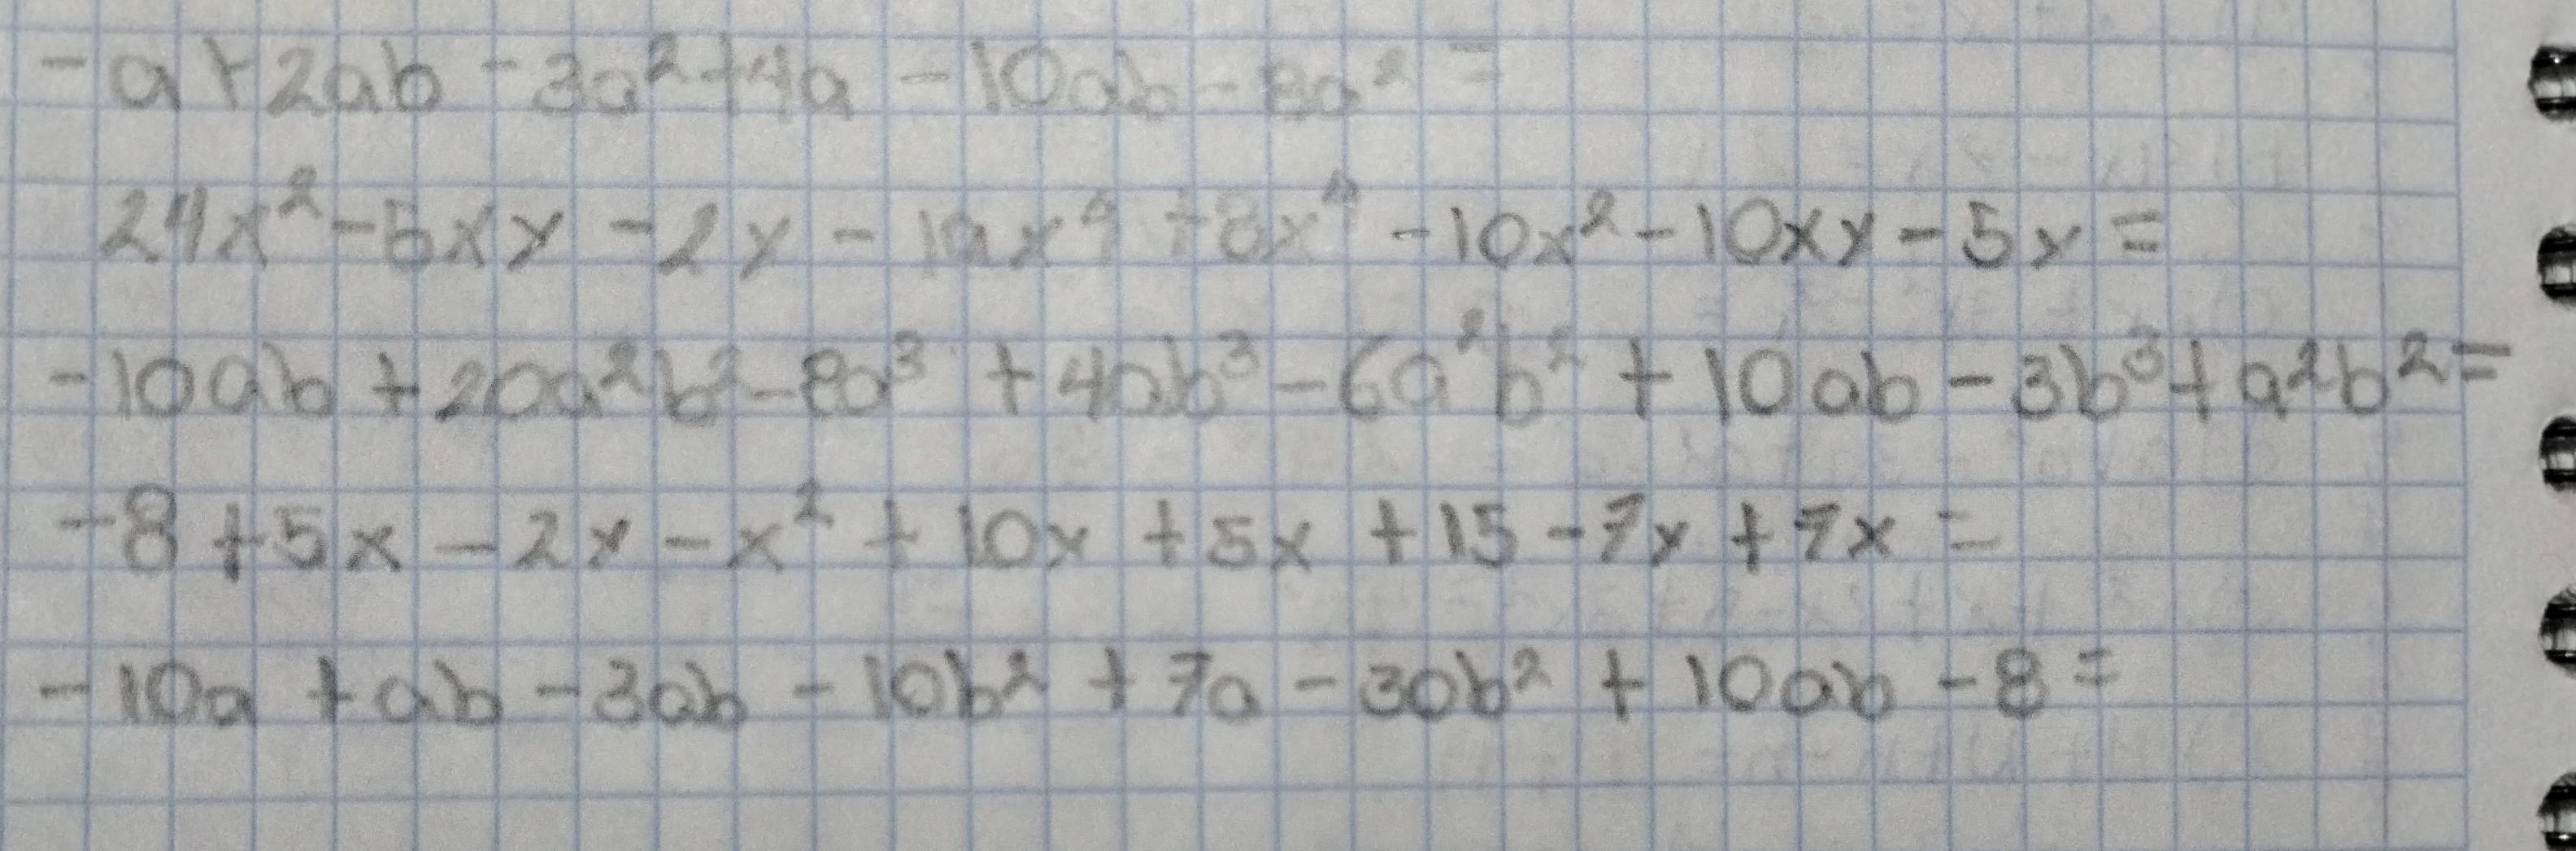 -a+2ab-3a²+4a-10ab-8a²=
24x²-5xy-2y-10x⁴+8x⁴-10x²-10xy-5y=
-10ab+20a²b²-8a³+4ab³-6a²b²+10ab-3b³+a²b²=
-8+5x-2x-x²+10x+5x+15-7x+7x=
-10a+ab-3ab-10b²+7a-30b²+10ab-8=